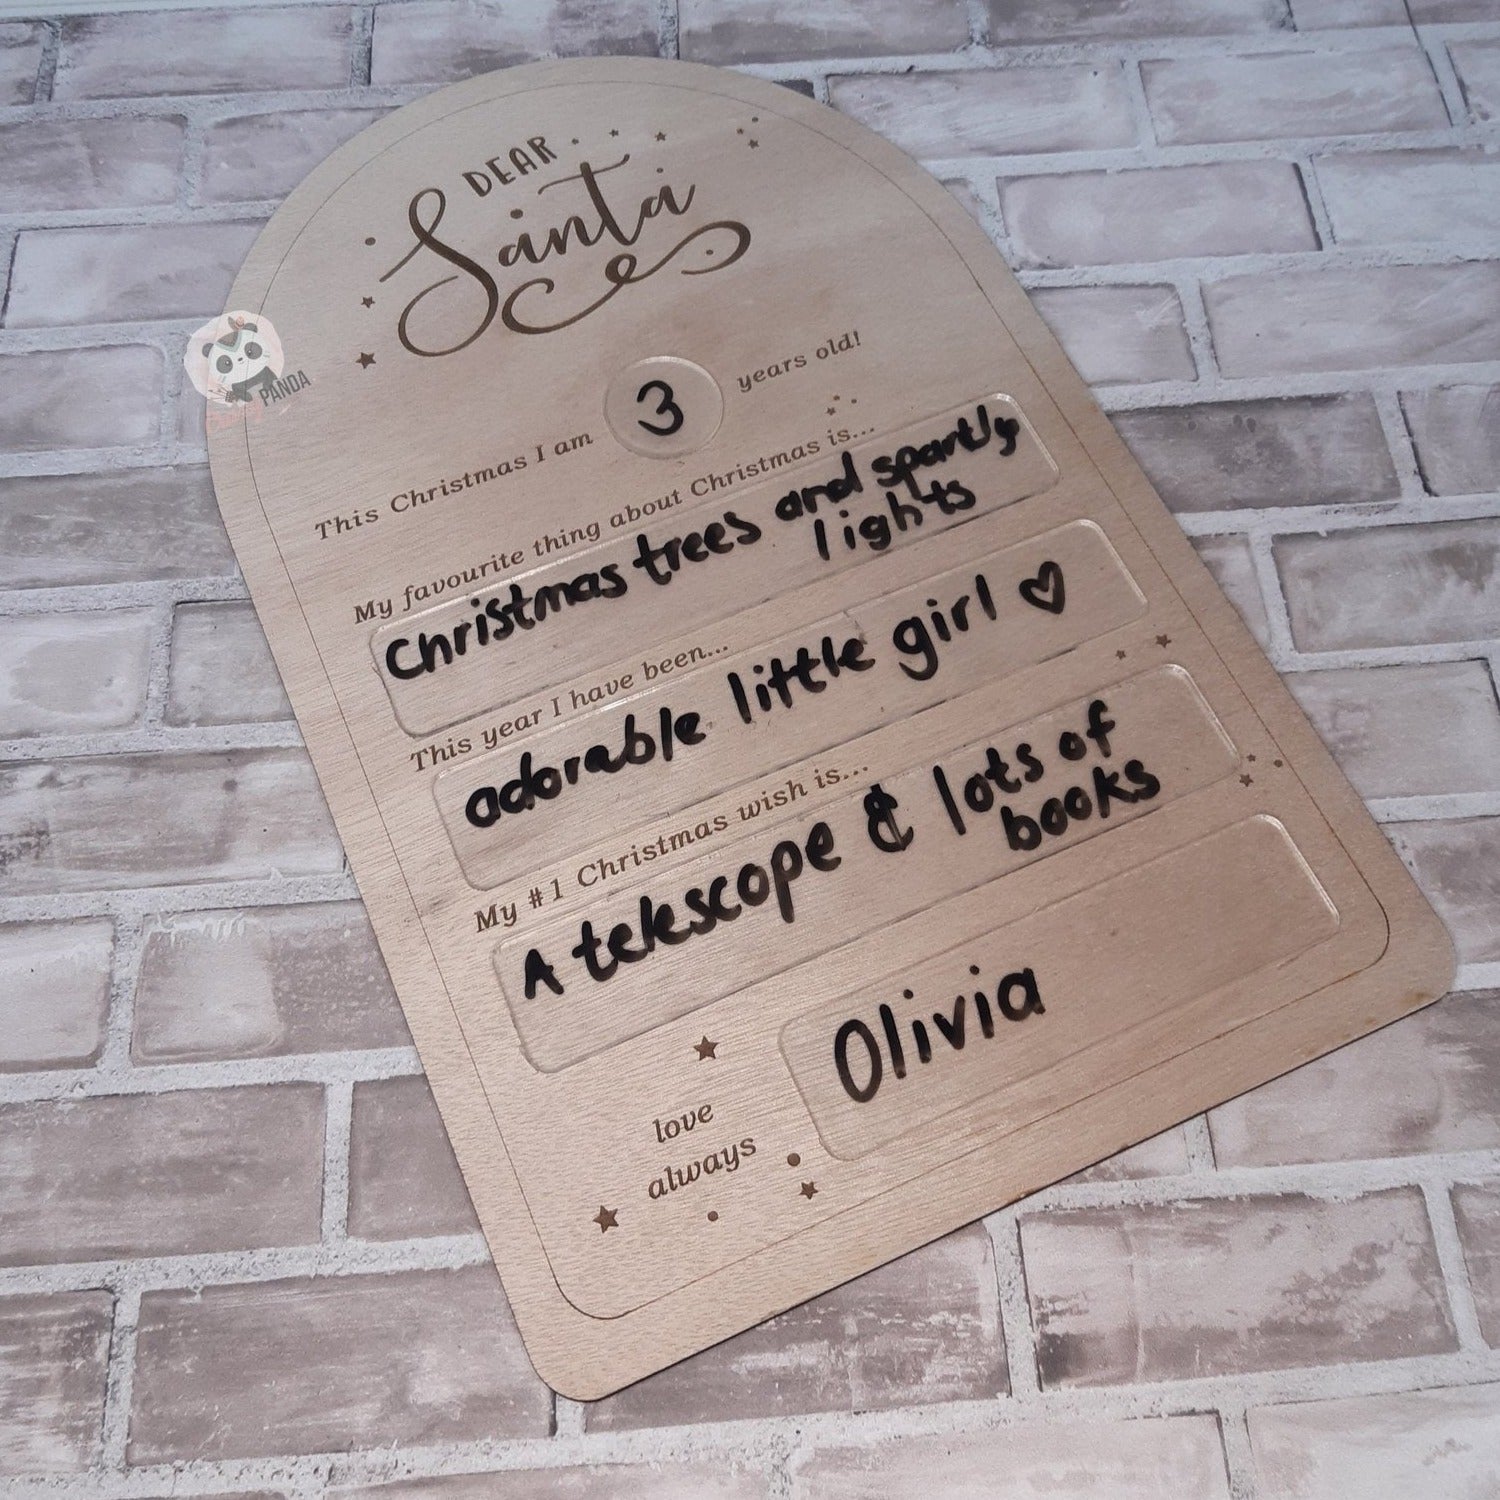 DEAR
Santa
This Christmas I am 3 years old!
My favourite thing about Christmas is...
Christmas trees and spartly
lights
This year I have been...
adorable little girl ♡
My #1 Christmas wish is...
A telescope & lots of
books
love
always
Olivia
PANDA